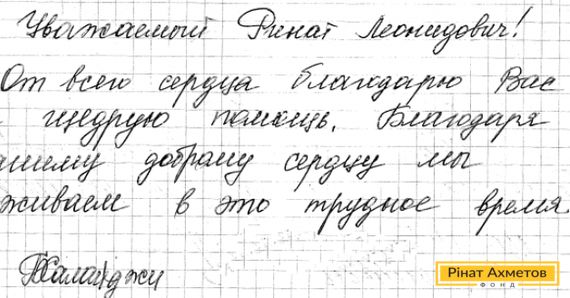 Уважаемый Ринат Леонидович!
От всего сердца благодарю Вас
щедрую помощь. Благодаря
ашему доброму сердцу мы
живаем в это трудное время.
Рінат Ахметов
ФОНД